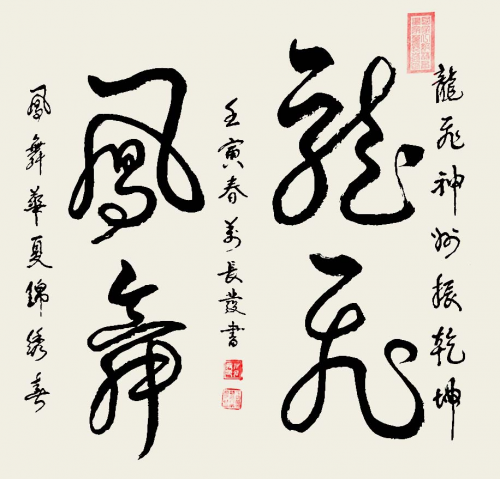 龍飛神州振乾坤
龍飛
壬寅春萬長發書
鳳舞
鳳舞華夏錦綉春